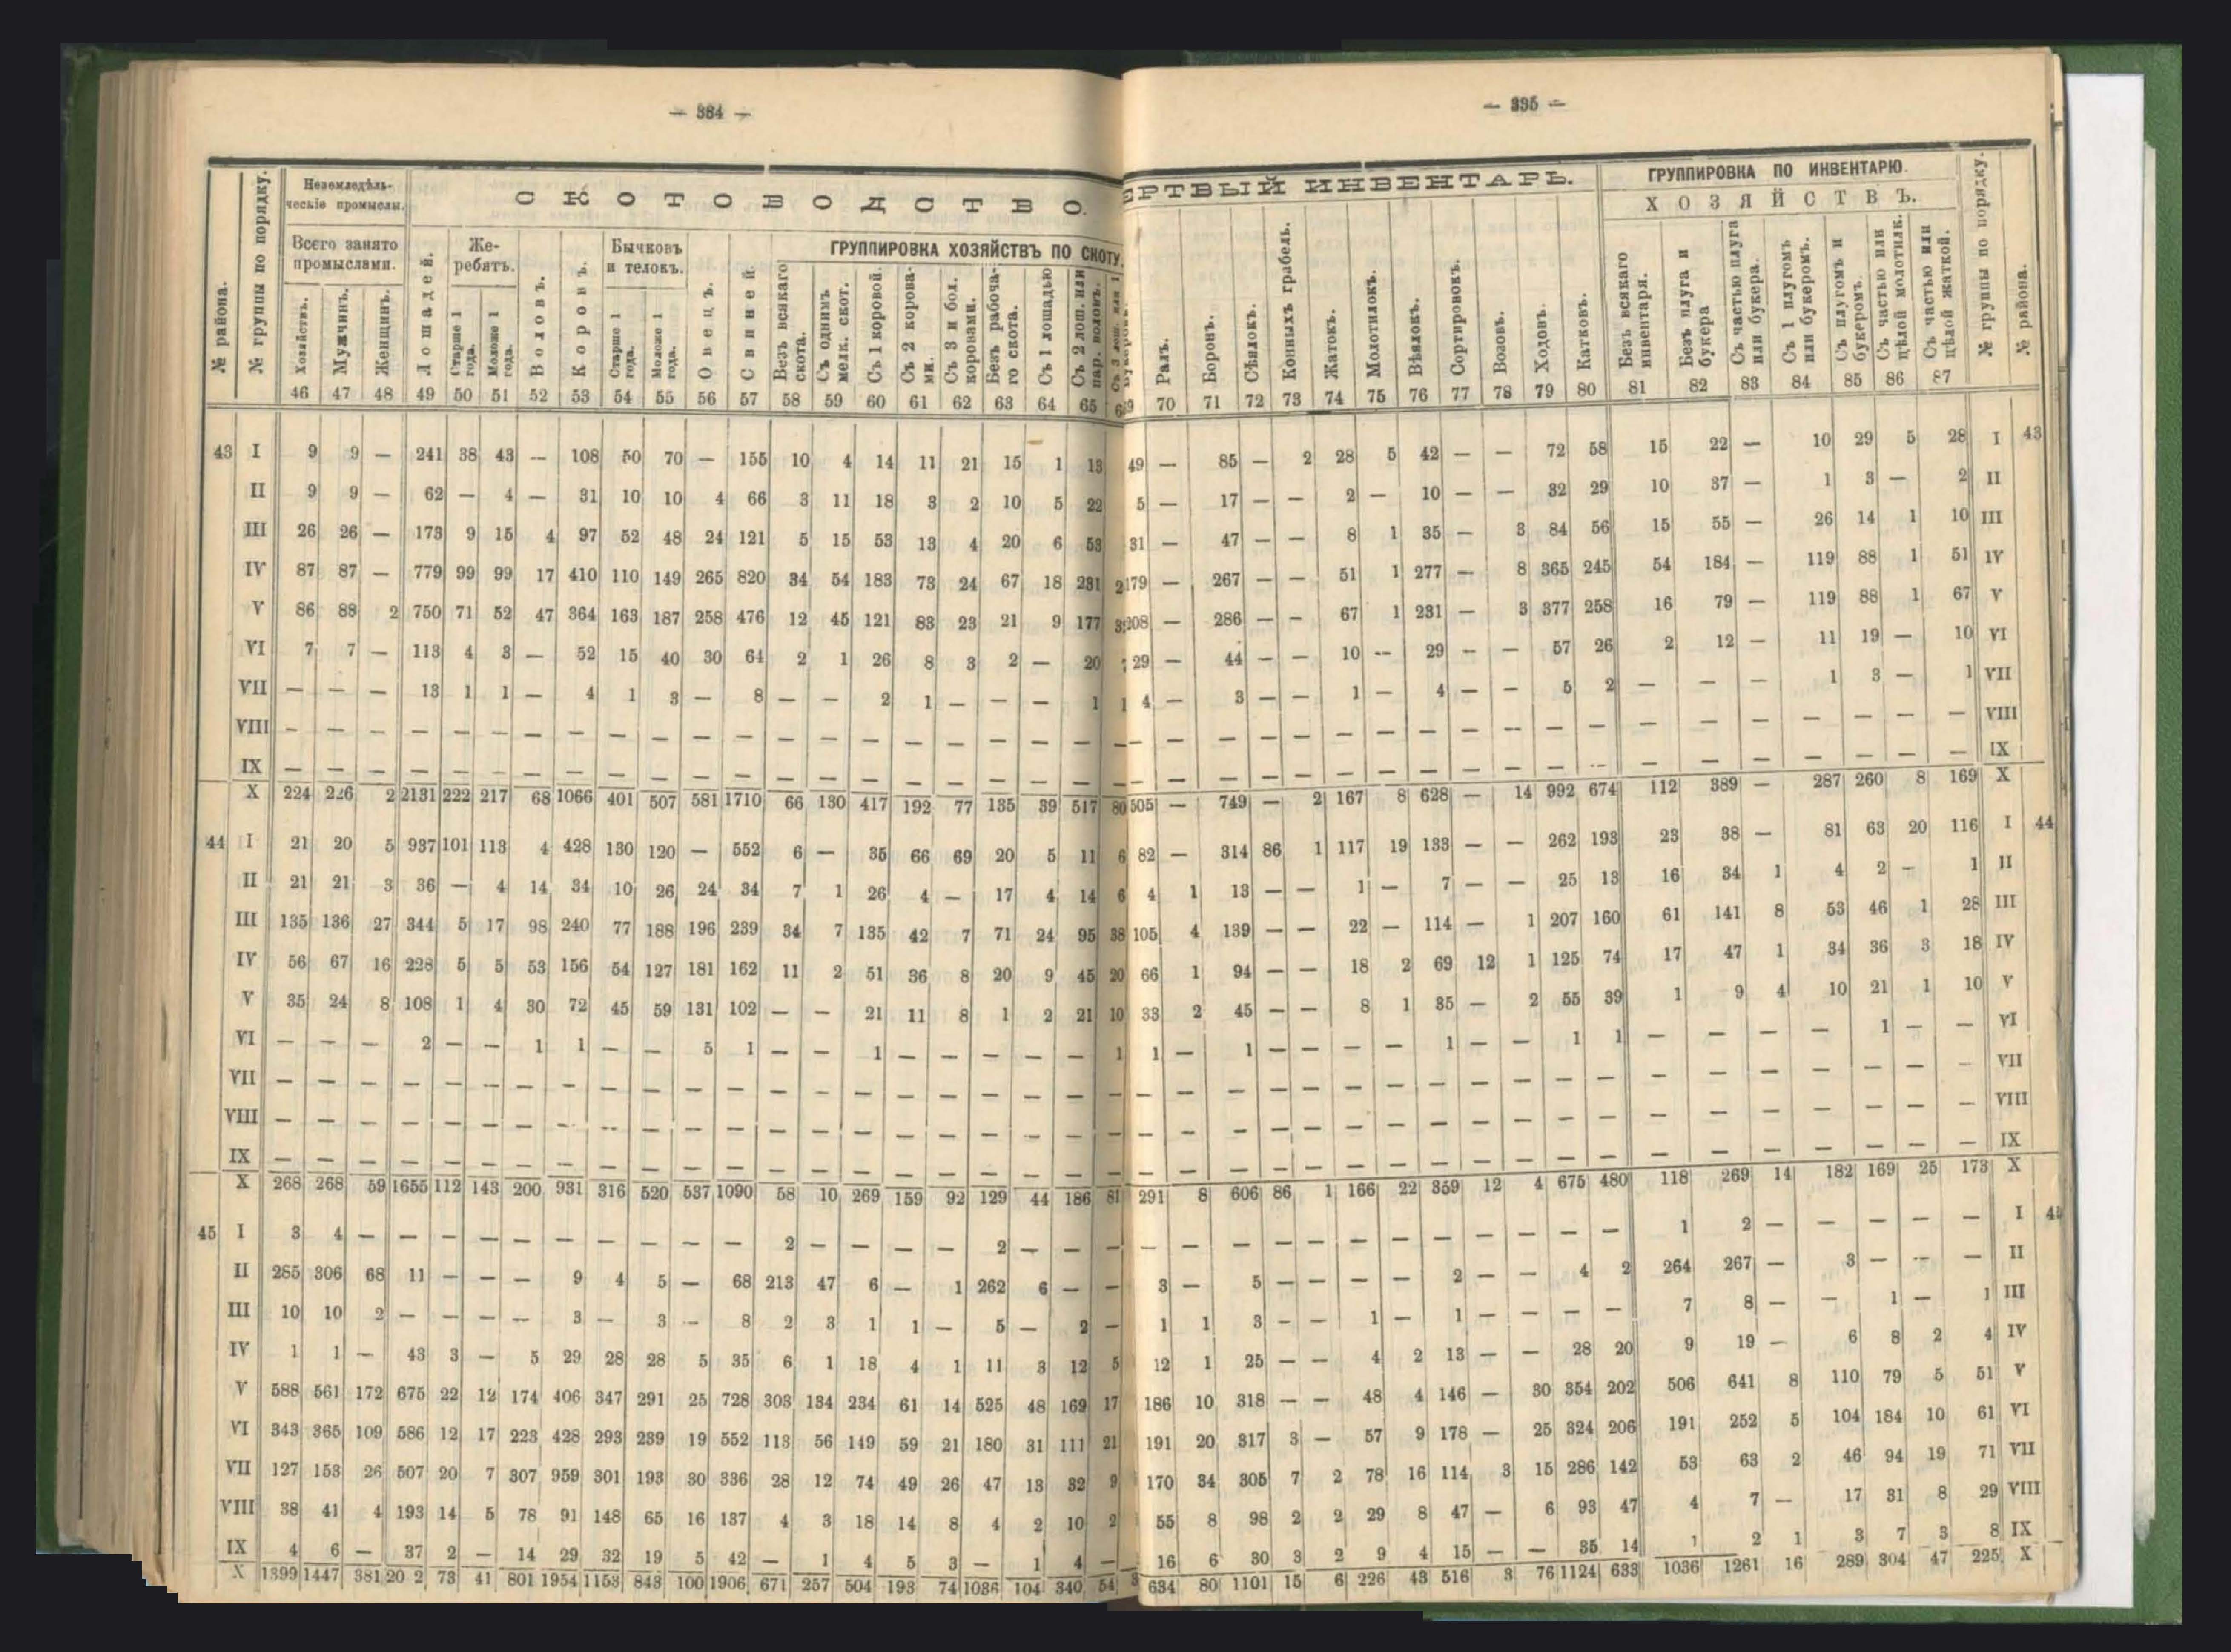 — 384 —
Неземледѣль-
ческіе промыслы.
СКОТОВОДСТВО.
№ района.
№ группы по порядку.
Всего занято
промыслами.
Лошадей.
Же-
ребятъ.
Воловъ.
Коровъ.
Бычковъ
и телокъ.
Овецъ.
Свиней.
ГРУППИРОВКА ХОЗЯЙСТВЪ ПО СКОТУ.
Хозяйствъ.
Мужчинъ.
Женщинъ.
Старше 1
года.
Моложе 1
года.
Старше 1
года.
Моложе 1
года.
Безъ всякаго
скота.
Съ однимъ
мелк. скот.
Съ 1 коровой.
Съ 2 корова-
ми.
Съ 3 и бол.
коровами.
Безъ рабоча-
го скота.
Съ 1 лошадью
Съ 2 лош. или
пар. воловъ.
46 47 48 49 50 51 52 53 54 55 56 57 58 59 60 61 62 63 64 65
43 I 9 9 — 241 38 43 — 108 50 70 — 155 10 4 14 11 21 15 1 13
II 9 9 — 62 — 4 — 31 10 10 4 66 3 11 18 3 2 10 5 22
III 26 26 — 173 9 15 4 97 52 48 24 121 5 15 53 13 4 20 6 53
IV 87 87 — 779 99 99 17 410 110 149 265 820 34 54 183 73 24 67 18 231
V 86 88 2 750 71 52 47 364 163 187 258 476 12 45 121 83 23 21 9 177
VI 7 7 — 113 4 3 — 52 15 40 30 64 2 1 26 8 3 2 — 20
VII — — — 13 1 1 — 4 1 3 — 8 — — 2 1 — — — 1 1
VIII — — — — — — — — — — — — — — — — — — — — —
IX — — — — — — — — — — — — — — — — — — — — —
X 224 226 2 2131 222 217 68 1066 401 507 581 1710 66 130 417 192 77 135 39 517 80
44 I 21 20 5 937 101 113 4 428 130 120 — 552 6 — 35 66 69 20 5 11 6
II 21 21 3 36 — 4 14 34 10 26 24 34 7 1 26 4 — 17 4 14 6
III 135 136 27 344 5 17 98 240 77 188 196 239 34 7 135 42 7 71 24 95 38
IV 56 67 16 228 5 5 53 156 54 127 181 162 11 2 51 36 8 20 9 45 20
V 35 24 8 108 1 4 30 72 45 59 131 102 — — 21 11 8 1 2 21 10
VI — — — 2 — — 1 1 — — 5 1 — — 1 — — — — — 1
VII — — — — — — — — — — — — — — — — — — — — —
VIII — — — — — — — — — — — — — — — — — — — — —
IX — — — — — — — — — — — — — — — — — — — — —
X 268 268 59 1655 112 143 200 931 316 520 537 1090 58 10 269 159 92 129 44 186 81
45 I 3 4 — — — — — — — — — — 2 — — — — 2 — — —
II 285 306 68 11 — — — 9 4 5 — 68 213 47 6 — 1 262 6 — —
III 10 10 2 — — — — 3 — 3 — 8 2 3 1 1 — 5 — 2 —
IV 1 1 — 43 3 — 5 29 28 28 5 35 6 1 18 4 1 11 3 12 5
V 588 561 172 675 22 12 174 406 347 291 25 728 303 134 234 61 14 525 48 169 17
VI 343 365 109 586 12 17 223 428 293 239 19 552 113 56 149 59 21 180 31 111 21
VII 127 153 26 507 20 7 307 959 301 193 30 336 28 12 74 49 26 47 13 32 9
VIII 38 41 4 193 14 5 78 91 148 65 16 137 4 3 18 14 8 4 2 10 2
IX 4 6 — 37 2 — 14 29 32 19 5 42 — 1 4 5 3 — 1 4 —
X 1399 1447 381 20 2 73 41 801 1954 1153 843 100 1906 671 257 504 193 74 1036 104 340 54
— 395 —
ЕРТВЫЙ ИНВЕНТАРЬ.
ГРУППИРОВКА ПО ИНВЕНТАРЮ.
ХОЗЯЙСТВЪ.
Ралъ.
Боронъ.
Сѣялокъ.
Конныхъ грабель.
Жатокъ.
Молотилокъ.
Вѣялокъ.
Сортировокъ.
Возовъ.
Ходовъ.
Катковъ.
Безъ всякаго
инвентаря.
Безъ плуга и
букера
Съ частью плуга
или букера.
Съ 1 плугомъ
или букеромъ.
Съ плугомъ и
букеромъ.
Съ частью или
цѣлой молотилк.
Съ частью или
цѣлой жаткой.
№ группы по порядку.
№ района.
70 71 72 73 74 75 76 77 78 79 80 81 82 83 84 85 86 87
49 — 85 — 2 28 5 42 — — 72 58 15 22 — 10 29 5 28 I 43
5 — 17 — — 2 — 10 — — 32 29 10 37 — 1 3 — 2 II
31 — 47 — — 8 1 35 — 3 84 56 15 55 — 26 14 1 10 III
179 — 267 — — 51 1 277 — 8 365 245 54 184 — 119 88 1 51 IV
208 — 286 — — 67 1 231 — 3 377 258 16 79 — 119 88 1 67 V
29 — 44 — — 10 — 29 — — 57 26 2 12 — 11 19 — 10 VI
4 — 3 — — 1 — 4 — — 5 2 — — — 1 3 — 1 VII
— — — — — — — — — — — — — — — — — — — VIII
— — — — — — — — — — — — — — — — — — — IX
505 — 749 — 2 167 8 628 — 14 992 674 112 389 — 287 260 8 169 X
82 — 314 86 1 117 19 133 — — 262 193 23 38 — 81 63 20 116 I 44
4 1 13 — — 1 — 7 — — 25 13 16 34 1 4 2 — 1 II
105 4 139 — — 22 — 114 — 1 207 160 61 141 8 53 46 1 28 III
66 1 94 — — 18 2 69 12 1 125 74 17 47 1 34 36 3 18 IV
33 2 45 — — 8 1 35 — 2 55 39 1 9 4 10 21 1 10 V
1 — 1 — — — — 1 — — 1 1 — — — — 1 — — VI
— — — — — — — — — — — — — — — — — — — VII
— — — — — — — — — — — — — — — — — — — VIII
— — — — — — — — — — — — — — — — — — — IX
291 8 606 86 1 166 22 359 12 4 675 480 118 269 14 182 169 25 173 X
— — — — — — — — — — — — 1 2 — — — — — I
3 — 5 — — — — 2 — — 4 2 264 267 — 3 — — — II
1 1 3 — — 1 — 1 — — — — 7 8 — — 1 — 1 III
12 1 25 — — 4 2 13 — — 28 20 9 19 — 6 8 2 4 IV
186 10 318 — — 48 4 146 — 30 354 202 506 641 8 110 79 5 51 V
191 20 317 3 — 57 9 178 — 25 324 206 191 252 5 104 184 10 61 VI
170 34 305 7 2 78 16 114 3 15 286 142 53 63 2 46 94 19 71 VII
55 8 98 2 2 29 8 47 — 6 93 47 4 7 — 17 31 8 29 VIII
16 6 30 3 2 9 4 15 — — 35 14 1 2 1 3 7 3 8 IX
634 80 1101 15 6 226 43 516 3 76 1124 633 1036 1261 16 289 304 47 225 X